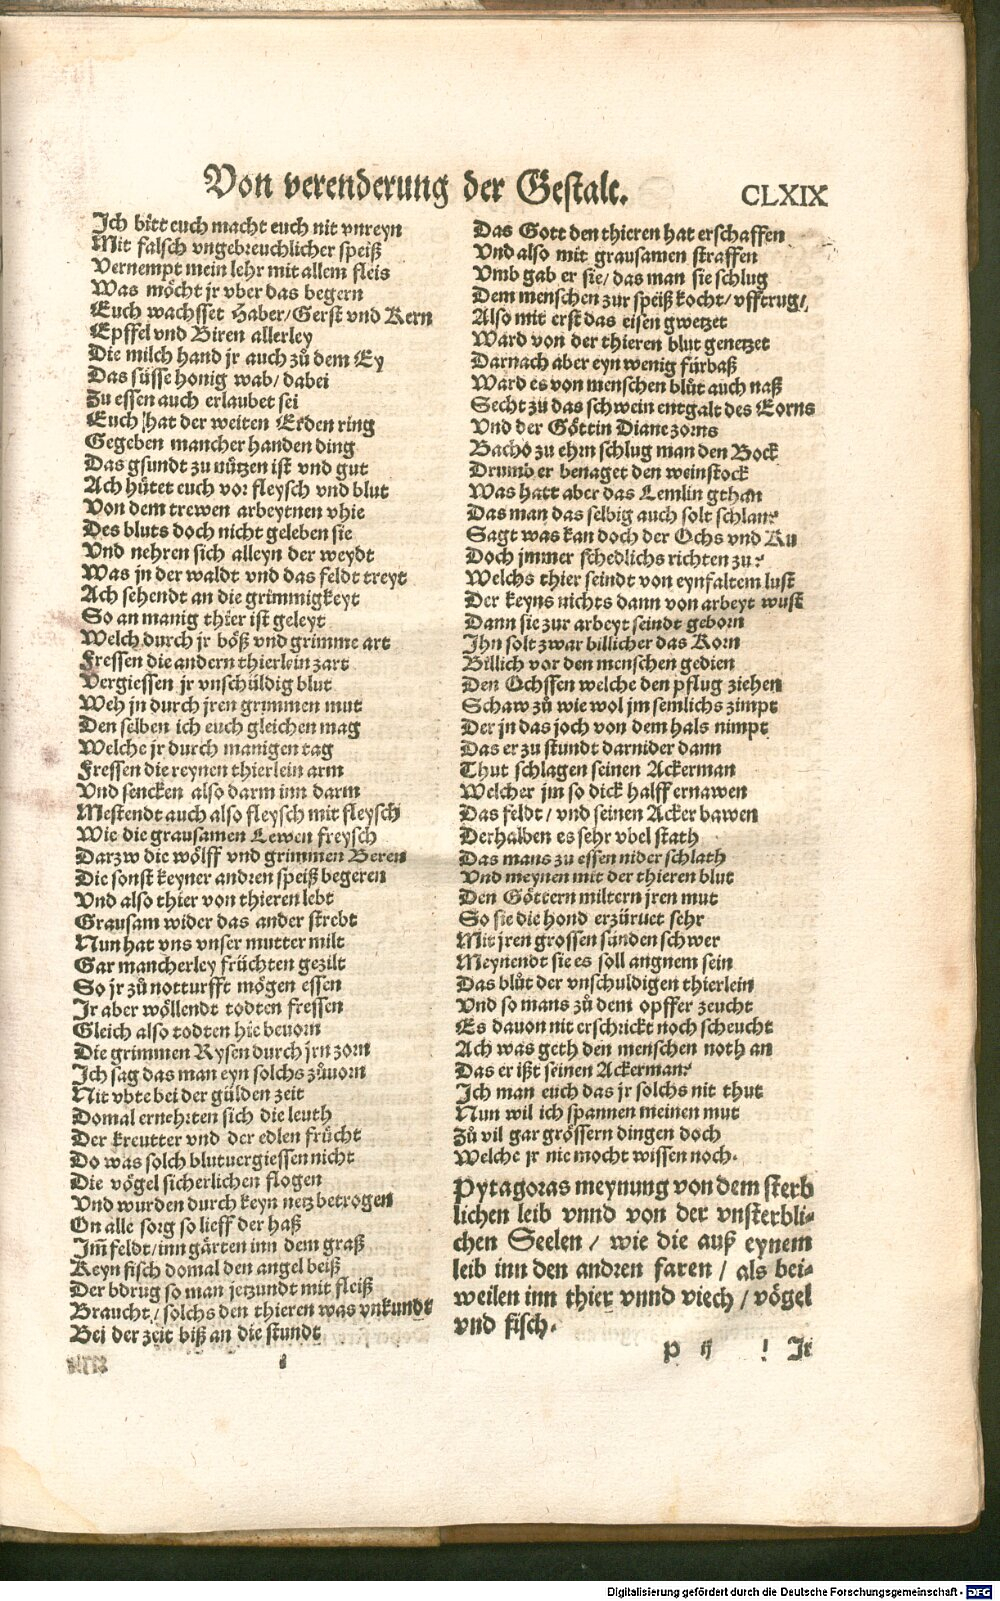 Von verenderung der Gestalt. CLXIX
Ich bitt euch macht euch nit vnreyn
Mit falsch vngebreuchlicher speiß
Vernempt mein lehr mit allem fleis
Was möcht jr vber das begern
Euch wachsset Haber/Gerst vnd Kern
Epffel vnd Biren allerley
Die milch hand jr auch zů dem Ey
Das süsse honig wab/ dabei
Zu essen auch erlaubet sei
Euch hat der weiten Erden ring
Gegeben mancher handen ding
Das gsundt zu nützen ist vnd gut
Ach hütet euch vor fleysch vnd blut
Von dem trewen arbeytnen vhie
Des bluts doch nicht geleben sie
Vnd nehren sich alleyn der weydt
Was jn der waldt vnd das feldt treyt
Ach sehendt an die grimmigkeyt
So an manig thier ist geleyt
Welch durch jr böß vnd grimme art
Fressen die andern thierlein zart
Vergiessen jr vnschüldig blut
Weh jn durch jren grimmen mut
Den selben ich euch gleichen mag
Welche jr durch manigen tag
Fressen die reynen thierlein arm
Vnd sencken also darm inn darm
Mestendt auch also fleysch mit fleysch
Wie die grausamen Lewen freysch
Darzw die wölff vnd grimmen Beren
Die sonst keyner andren speiß begeren
Vnd also thier von thieren lebt
Grausam wider das ander strebt
Nun hat vns vnser mutter milt
Gar mancherley früchten gezilt
So jr zů notturfft mögen essen
Jr aber wöllendt todten fressen
Gleich also todten hie beuorn
Die grimmen Rysen durch jrn zorn
Ich sag das man eyn solchs zůuorn
Nit vbte bei der gülden zeit
Domal ernehrten sich die leuth
Der kreutter vnd der edlen frücht
Do was solch blutuergiessen nicht
Die vögel sicherlichen flogen
Vnd wurden durch keyn netz betrogen
On alle sorg so lieff der haß
Im̃ feldt/inn gärten inn dem graß
Keyn fisch domal den angel beiß
Der bdrug so man jetzundt mit fleiß
Braucht/ solchs den thieren was vnkundt
Bei der zeit biß an die stundt
Das Gott den thieren hat erschaffen
Vnd also mit grausamen straffen
Vmb gab er sie/ das man sie schlug
Dem menschen zur speiß kocht/ vfftrug/
Also mit erst das eisen gwetzet
Ward von der thieren blut genetzet
Darnach aber eyn wenig fürbaß
Ward es von menschen blůt auch naß
Secht zu das schwein entgalt des Corns
Vnd der Göttin Diane zorns
Bacho zu ehrn schlug man den Bock
Drumb er benaget den weinstock
Was hatt aber das Lemlin gthan
Das man das selbig auch solt schlan?
Sagt was kan doch der Ochs vnd Ku
Doch jmmer schedlichs richten zu?
Welchs thier seindt von eynfaltem lust
Der keyns nichts dann von arbeyt wust
Dann sie zur arbeyt seindt geborn
Ihn solt zwar billicher das Korn
Billich vor den menschen gedien
Den Ochssen welche den pflug ziehen
Schaw zů wie wol jm semlichs zimpt
Der jn das joch von dem hals nimpt
Das er zu stundt darnider dann
Thut schlagen seinen Ackerman
Welcher jm so dick halff ernawen
Das feldt/ vnd seinen Acker bawen
Derhalben es sehr vbel stath
Das mans zu essen nider schlath
Vnd meynen mit der thieren blut
Den Göttern miltern jren mut
So sie die hond erzürnet sehr
Mit jren grossen sünden schwer
Meynendt sie es soll angnem sein
Das blůt der vnschuldigen thierlein
Vnd so mans zů dem opffer zeucht
Es dauon nit erschrickt noch scheucht
Ach was geth den menschen noth an
Das er ißt seinen Ackerman?
Ich man euch das jr solchs nit thut
Nun wil ich spannen meinen mut
Zů vil gar grössern dingen doch
Welche jr nie mocht wissen noch.
Pytagoras meynung von dem sterb
lichen leib vnnd von der vnsterbli-
chen Seelen/ wie die auß eynem
leib inn den andren faren/ als bei-
weilen inn thier vnnd viech/ vögel
vnd fisch.
P ij ! Jr
Digitalisierung gefördert durch die Deutsche Forschungsgemeinschaft - DFG